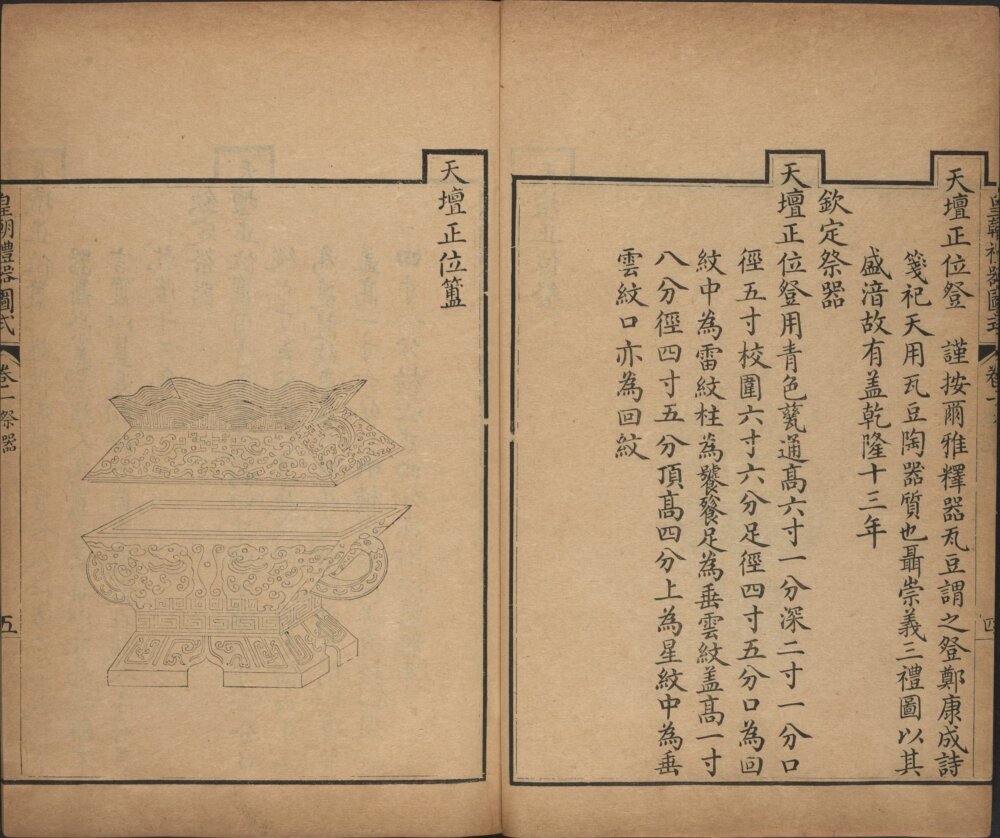 天壇正位登　謹按爾雅釋器瓦豆謂之登鄭康成詩
箋祀天用瓦豆陶器質也聶崇義三禮圖以其
盛湆故有盖乾隆十三年
欽定祭器
天壇正位登用青色甆通高六寸一分深二寸一分口
徑五寸校圍六寸六分足徑四寸五分口為回
紋中為雷紋柱為饕餮足為垂雲紋盖高一寸
八分徑四寸五分頂高四分上為星紋中為垂
雲紋口亦為回紋
天壇正位簠
皇朝禮器圖式
卷一 祭器
五